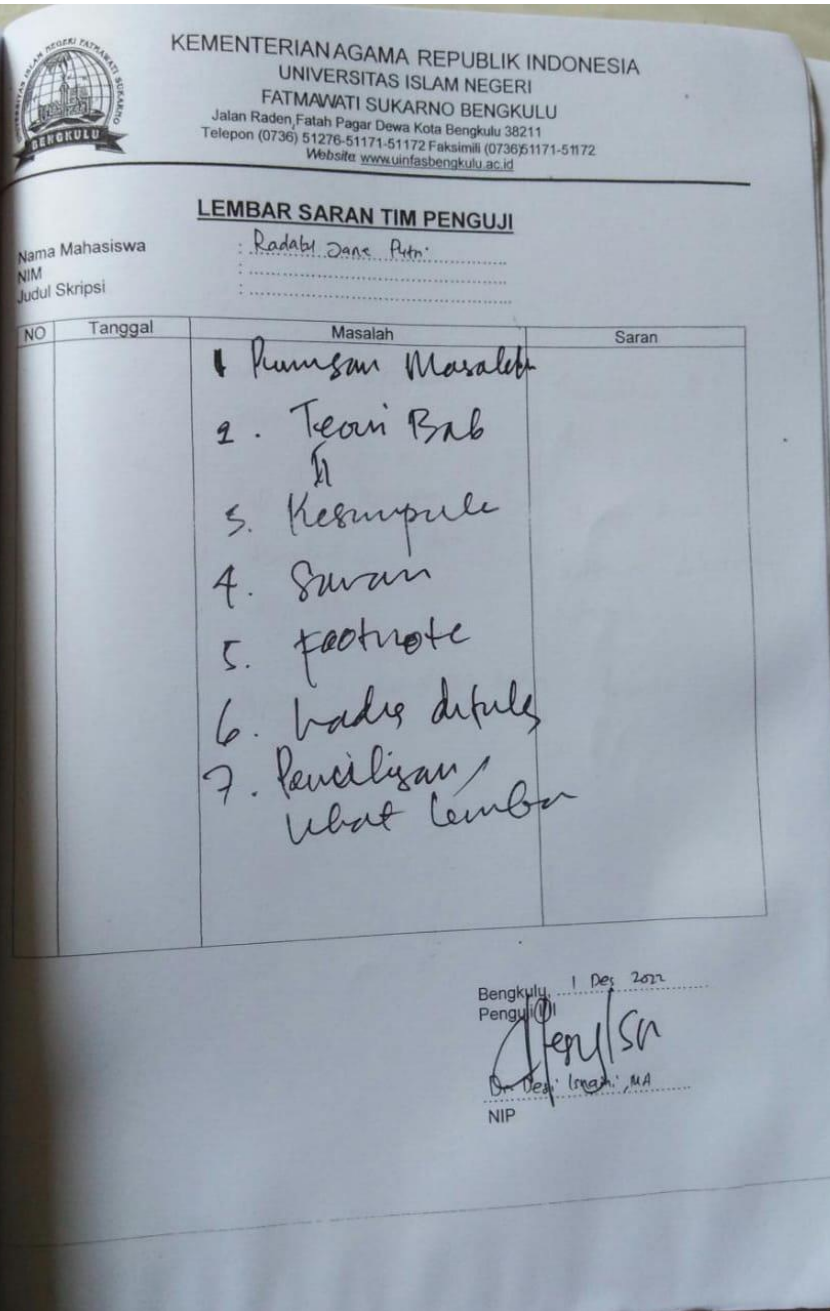 UNIVERSITAS ISLAM NEGERI FATMAWATI SUKARNO
BENGKULU
KEMENTERIAN AGAMA REPUBLIK INDONESIA
UNIVERSITAS ISLAM NEGERI
FATMAWATI SUKARNO BENGKULU
Jalan Raden Fatah Pagar Dewa Kota Bengkulu 38211
Telepon (0736) 51276-51171-51172 Faksimili (0736)51171-51172
Website www.uinfasbengkulu.ac.id
LEMBAR SARAN TIM PENGUJI
Nama Mahasiswa : Radaby Jane Putri
NIM :
Judul Skripsi :
NO Tanggal Masalah Saran
1 Rumusan Masalah
2. Teori Bab
II
3. Kesimpula
4. Saran
5. Footnote
6. hadis ditulis
7. Penulisan,
lihat lemba
Bengkulu, 1 Des 2022
Penguji
Dr. Desi Isnaini, MA
NIP